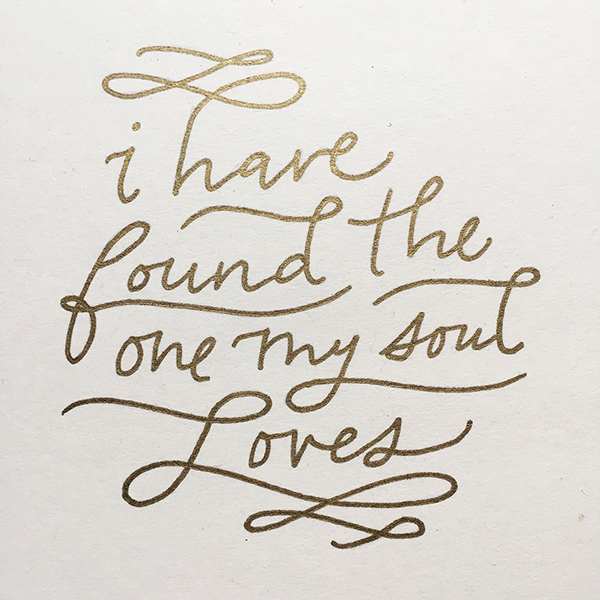 i have
found the
one my soul
Loves